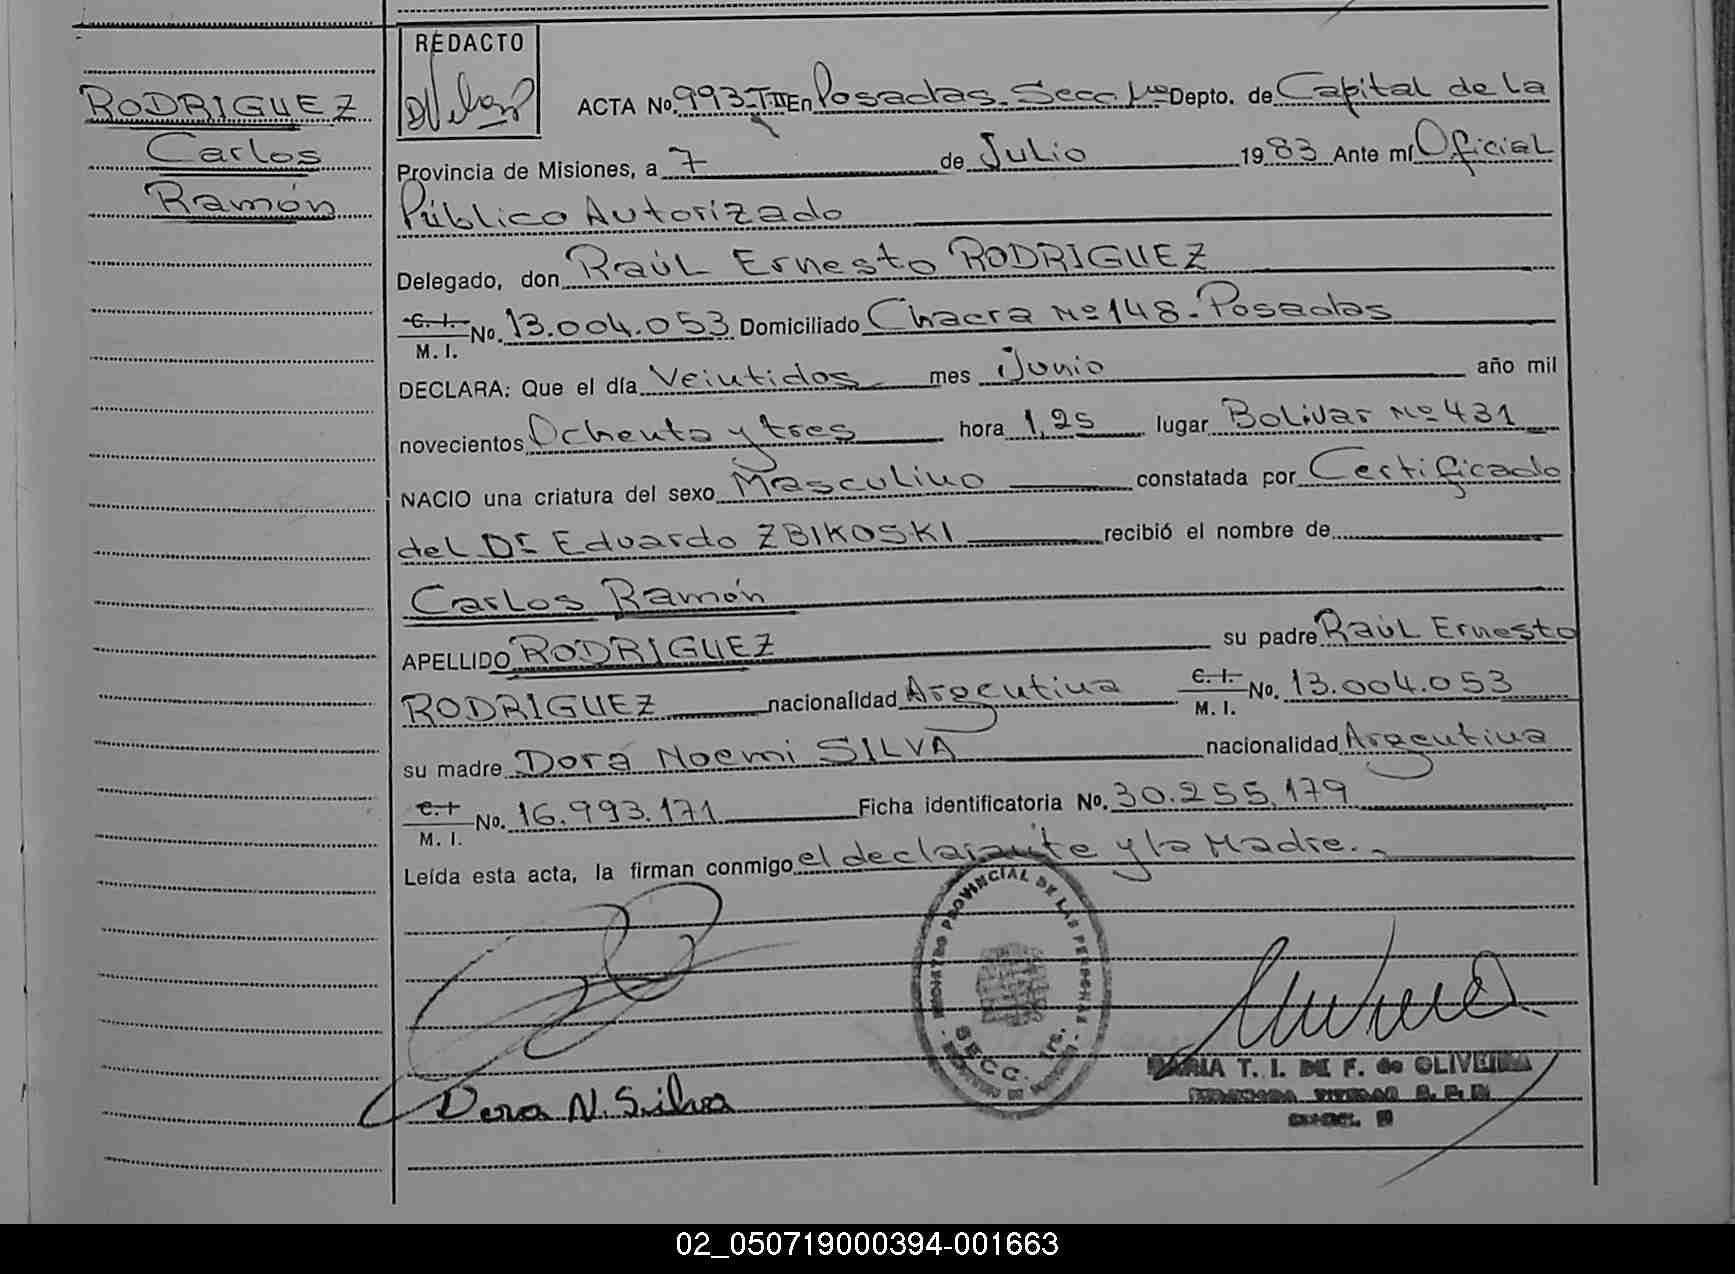 RODRIGUEZ
Carlos
Ramón
REDACTO
ACTA No. 993-T.II En Posadas-Secc. 1ra Depto. de Capital de la
Provincia de Misiones, a 7 de Julio 1983 Ante mí Oficial
Público Autorizado
Delegado, don Raúl Ernesto RODRIGUEZ
C. I. M. I. No. 13.004.053 Domiciliado Chacra No 148-Posadas
DECLARA: Que el día Veintidos mes Junio año mil
novecientos Ochenta y tres hora 1,25 lugar Bolivar No 431
NACIO una criatura del sexo Masculino constatada por Certificado
del Dr Eduardo ZBIKOSKI recibió el nombre de
Carlos Ramón
APELLIDO RODRIGUEZ su padre Raúl Ernesto
RODRIGUEZ nacionalidad Argentina C. I. M. I. No. 13.004.053
su madre Dora Noemi SILVA nacionalidad Argentina
C. I. M. I. No. 16.993.171 Ficha identificatoria No. 30.255.179
Leída esta acta, la firman conmigo el declarante y la Madre.-
REGISTRO PROVINCIAL DE LAS PERSONAS
SECC. 1ra.
Dora N. Silva
MARIA T. I. DE F. de OLIVEIRA
02_050719000394-001663